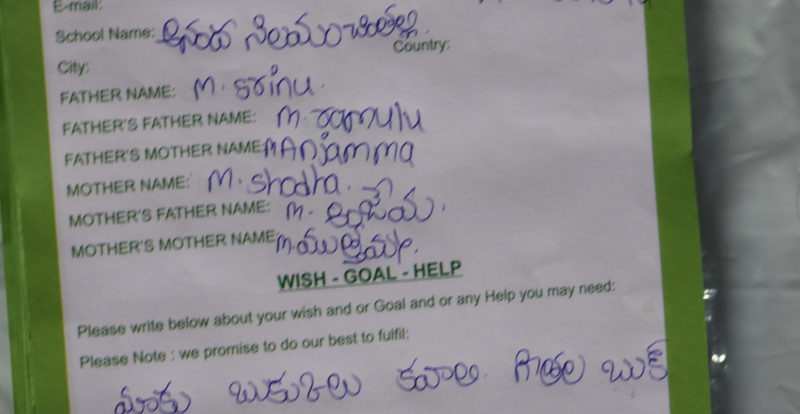 E-mail:
School Name: ఆనంద నిలయం చింతల్లి.
Country:
City:
FATHER NAME: M. Srinu.
FATHER'S FATHER NAME: M. ramulu
FATHER'S MOTHER NAME: MAnjamma
MOTHER NAME: M. Shodha.
MOTHER'S FATHER NAME: M.
MOTHER'S MOTHER NAME: M
WISH - GOAL - HELP
Please write below about your wish and or Goal and or any Help you may need:
Please Note : we promise to do our best to fulfil:
మాకు బుకులు కవాలి. గీతల బుక్